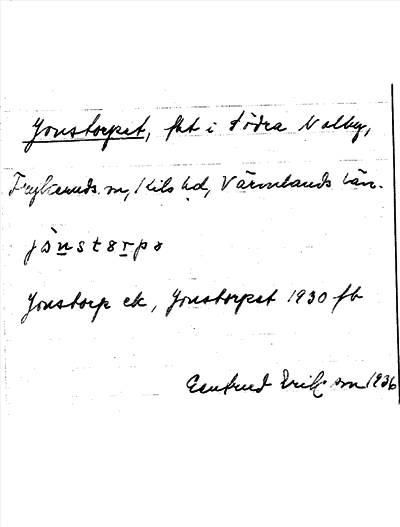 Jonstorpet, fkt i Södra Nolby,
Frykeruds sn, Kils hd, Värmlands län.
jònstorpə
Jonstorp ek, Jonstorpet 1930 fb
Gertrud Eriksson 1936